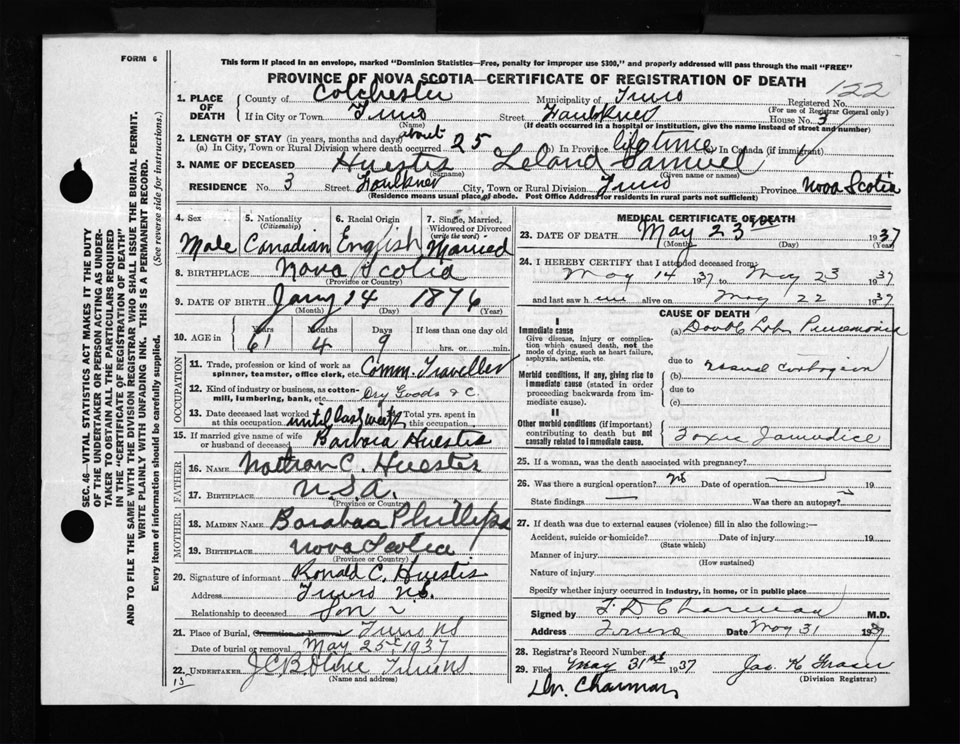 FORM 6
This form if placed in an envelope, marked "Dominion Statistics—Free, penalty for improper use $300," and properly addressed will pass through the mail "FREE"
PROVINCE OF NOVA SCOTIA—CERTIFICATE OF REGISTRATION OF DEATH
122
SEC. 46—VITAL STATISTICS ACT MAKES IT THE DUTY
OF THE UNDERTAKER OR PERSON ACTING AS UNDER-
TAKER TO OBTAIN ALL THE PARTICULARS REQUIRED
IN THE "CERTIFICATE OF REGISTRATION OF DEATH"
AND TO FILE THE SAME WITH THE DIVISION REGISTRAR WHO SHALL ISSUE THE BURIAL PERMIT.
WRITE PLAINLY WITH UNFADING INK. THIS IS A PERMANENT RECORD.
Every item of information should be carefully supplied. (See reverse side for instructions.)
1. PLACE OF DEATH County of Colchester Municipality of Truro Registered No.
(For use of Registrar General only)
If in City or Town Truro Street Faulkner House No. 3
(Name) (If death occurred in a hospital or institution, give the name instead of street and number)
2. LENGTH OF STAY (in years, months and days)
(a) In City, Town or Rural Division where death occurred about 25 (b) In Province lifetime (c) In Canada (if immigrant)
3. NAME OF DECEASED Huestis Leland Samuel
(Surname) (Given name or names)
RESIDENCE No. 3 Street Faulkner City, Town or Rural Division Truro Province Nova Scotia
(Residence means usual place of abode. Post Office Address for residents in rural parts not sufficient)
4. Sex 5. Nationality (Citizenship) 6. Racial Origin 7. Single, Married, Widowed or Divorced (write the word)
Male Canadian English Married
8. BIRTHPLACE Nova Scotia
(Province or Country)
9. DATE OF BIRTH Jany 14 1876
(Month) (Day) (Year)
10. AGE in Years Months Days If less than one day old
61 4 9 hrs. or min.
OCCUPATION
11. Trade, profession or kind of work as spinner, teamster, office clerk, etc. Comm. Traveller
12. Kind of industry or business, as cotton-mill, lumbering, bank, etc. Dry Goods & C.
13. Date deceased last worked at this occupation until last week Total yrs. spent in this occupation
15. If married give name of wife or husband of deceased Barbara Huestis
FATHER
16. NAME Nathan C. Huestis
17. BIRTHPLACE U.S.A.
(Province or Country)
MOTHER
18. MAIDEN NAME Phillips
19. BIRTHPLACE Nova Scotia
(Province or Country)
20. Signature of informant Ronald C. Huestis
Address Truro N.S.
Relationship to deceased Son
21. Place of Burial, Cremation or Removal Truro NS
Date of burial or removal May 25 1937
22. UNDERTAKER Truro NS
(Name and address)
15
MEDICAL CERTIFICATE OF DEATH
23. DATE OF DEATH May 23 1937
(Month) (Day) (Year)
24. I HEREBY CERTIFY that I attended deceased from:
May 14 1937 to May 23 1937
and last saw h im alive on May 22 1937
CAUSE OF DEATH
I
Immediate cause (a) Double Lobar Pneumonia
Give disease, injury or complication which caused death, not the mode of dying, such as heart failure, asphyxia, asthenia, etc.
due to
Morbid conditions, if any, giving rise to immediate cause (stated in order proceeding backwards from immediate cause) (b)
due to
(c)
II
Other morbid conditions (if important) contributing to death but not causally related to immediate cause. Toxic Jaundice
25. If a woman, was the death associated with pregnancy?
26. Was there a surgical operation? no Date of operation 19
State findings Was there an autopsy?
27. If death was due to external causes (violence) fill in also the following:—
Accident, suicide or homicide? Date of injury 19
(State which)
Manner of injury
(How sustained)
Nature of injury
Specify whether injury occurred in Industry, in home, or in public place
Signed by M.D.
Address Truro Date May 31 1937
28. Registrar's Record Number
29. Filed May 31st 1937 Jas. K
(Division Registrar)
Dr. Charman